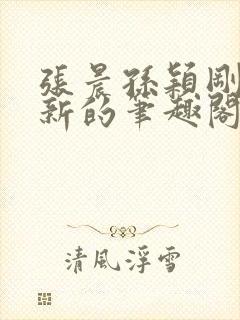 張晨孫穎剛
新的筆趣閣
清風浮雪